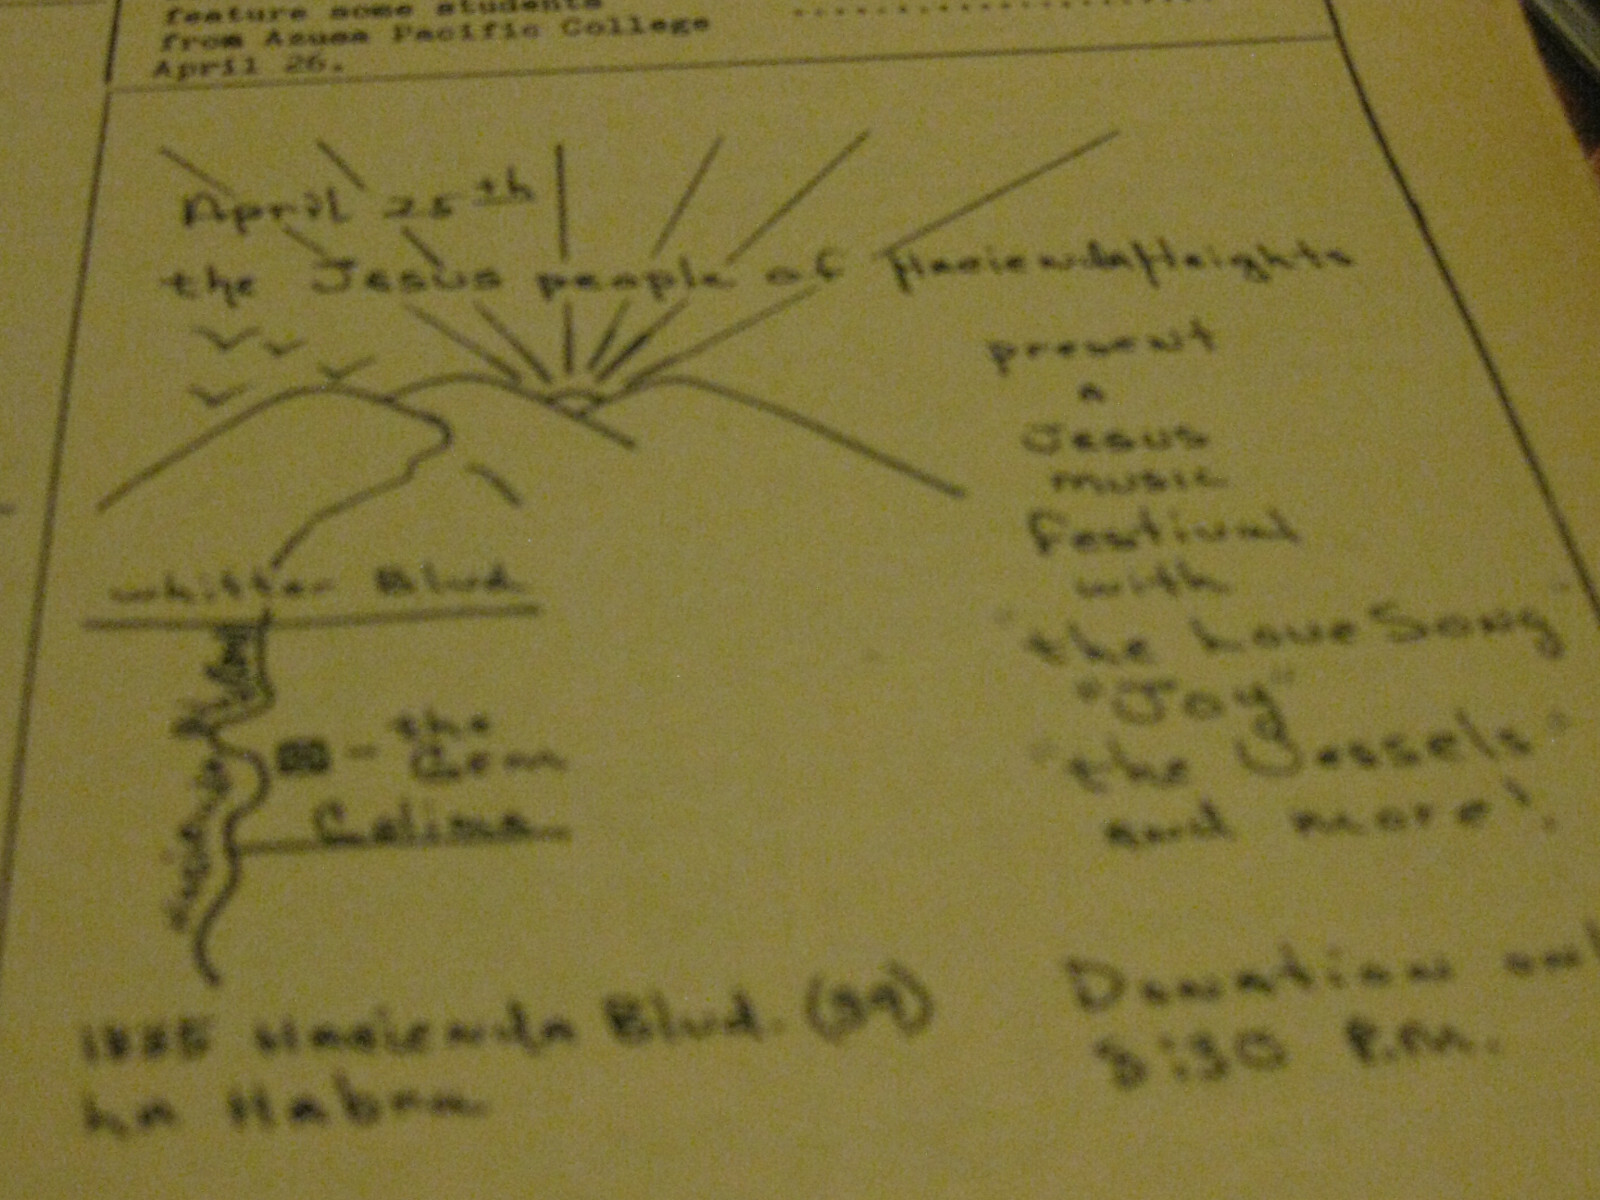 feature some students
from Azusa Pacific College
April 26.
April 25th
the Jesus people of Hacienda Heights
present
a
Jesus
music
festival
with
"the Love Song"
"Joy"
"the Vessels"
and more!
Whitter Blvd
Hacienda Blvd
- the Gem
Colima
Hacienda Blvd. (39)
La Habra
Donation
8:30 P.M.